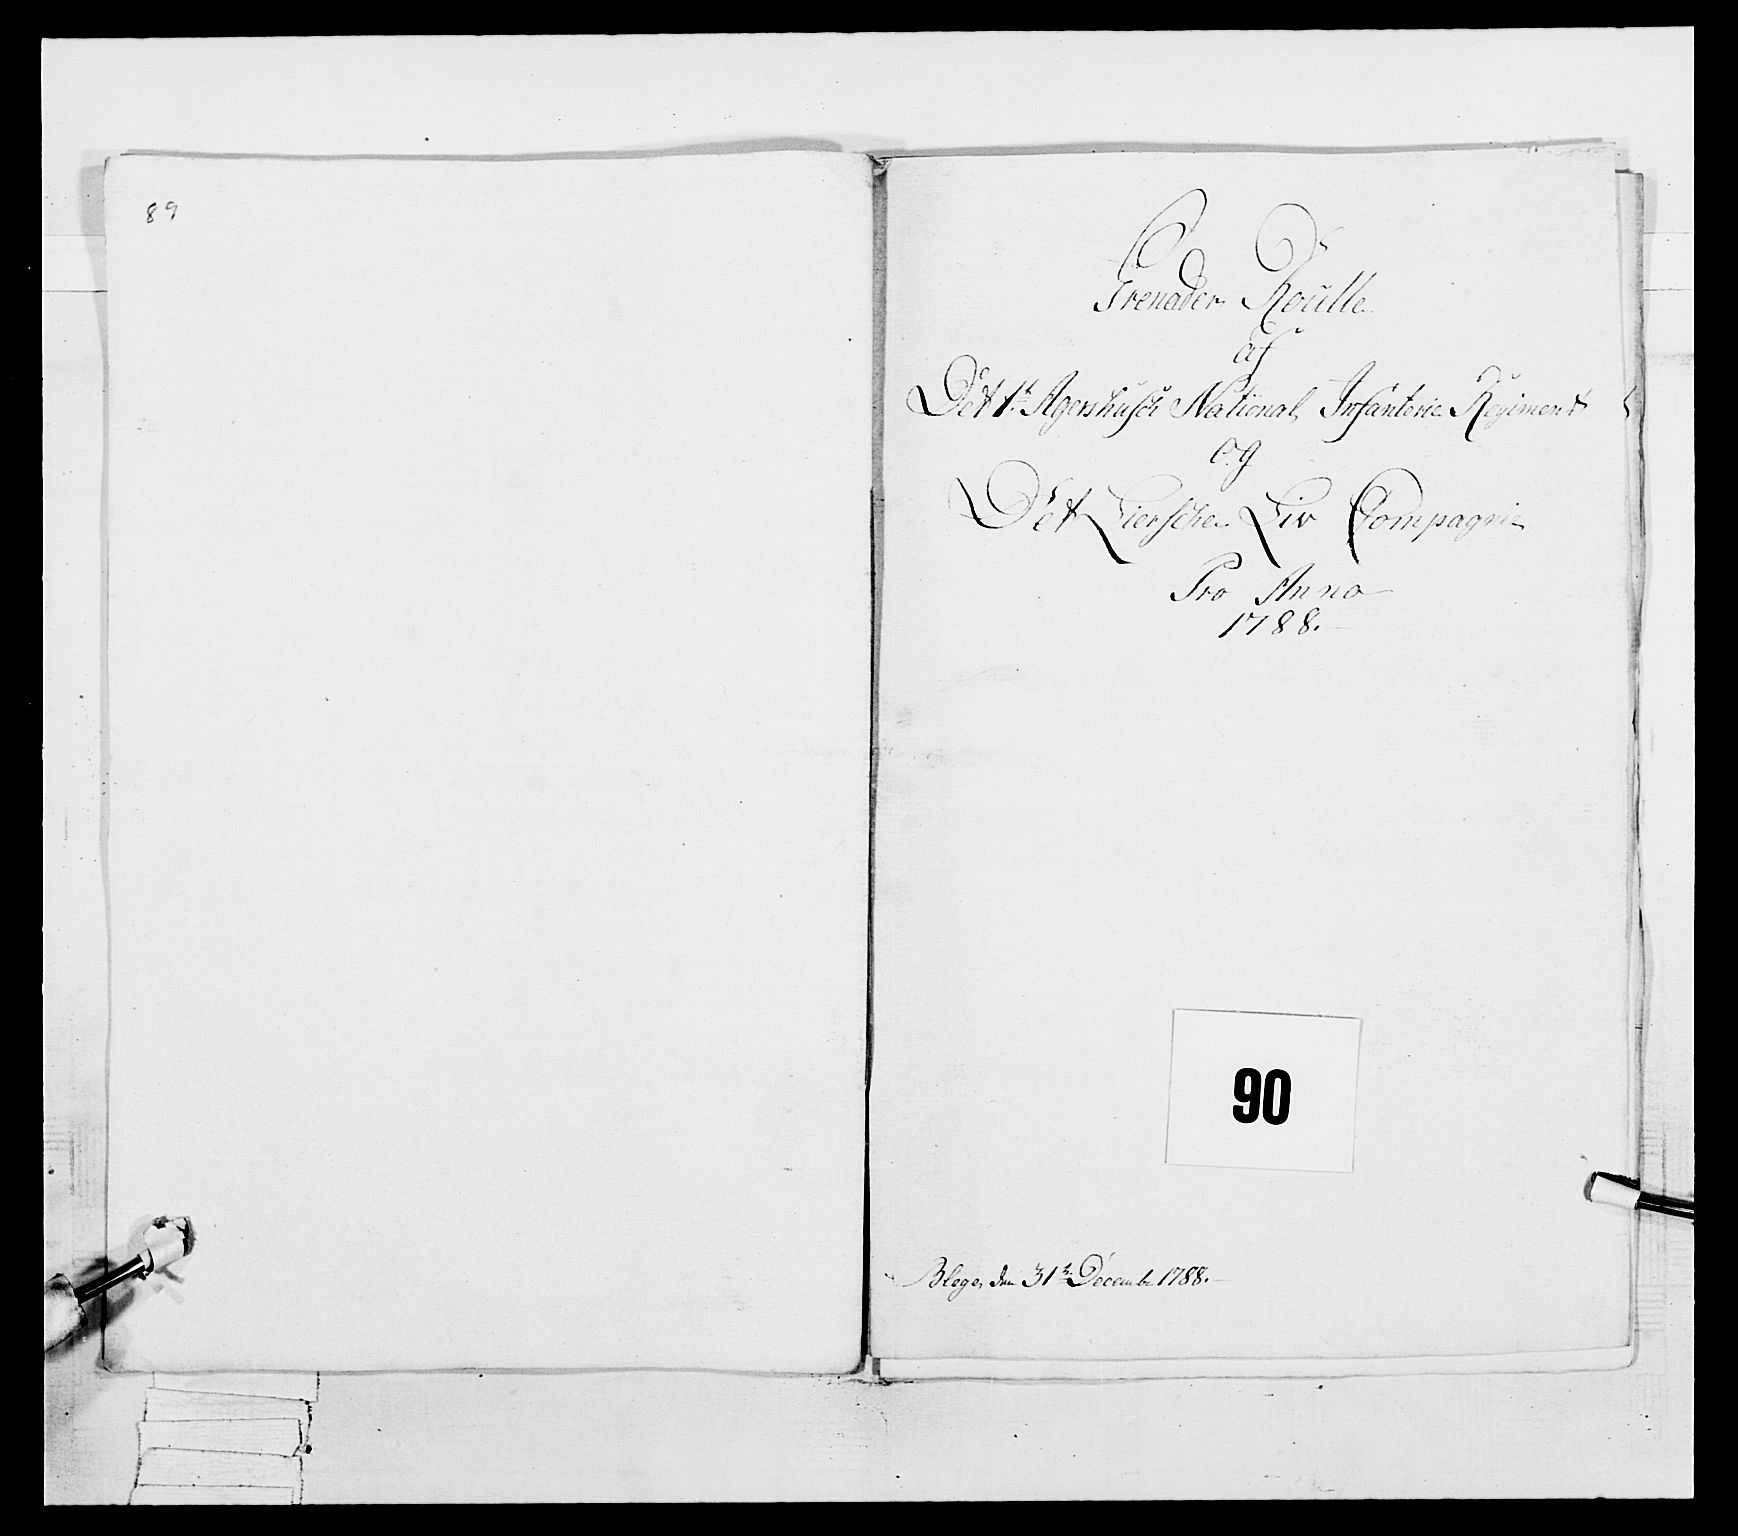 89
Grenader Roulle
af
Det 1te Agershusch National Infanterie Regiment
og
Det Liersche Liv Compagnie
Pro Anno
1788.
90
den 31te Decembr 1788.